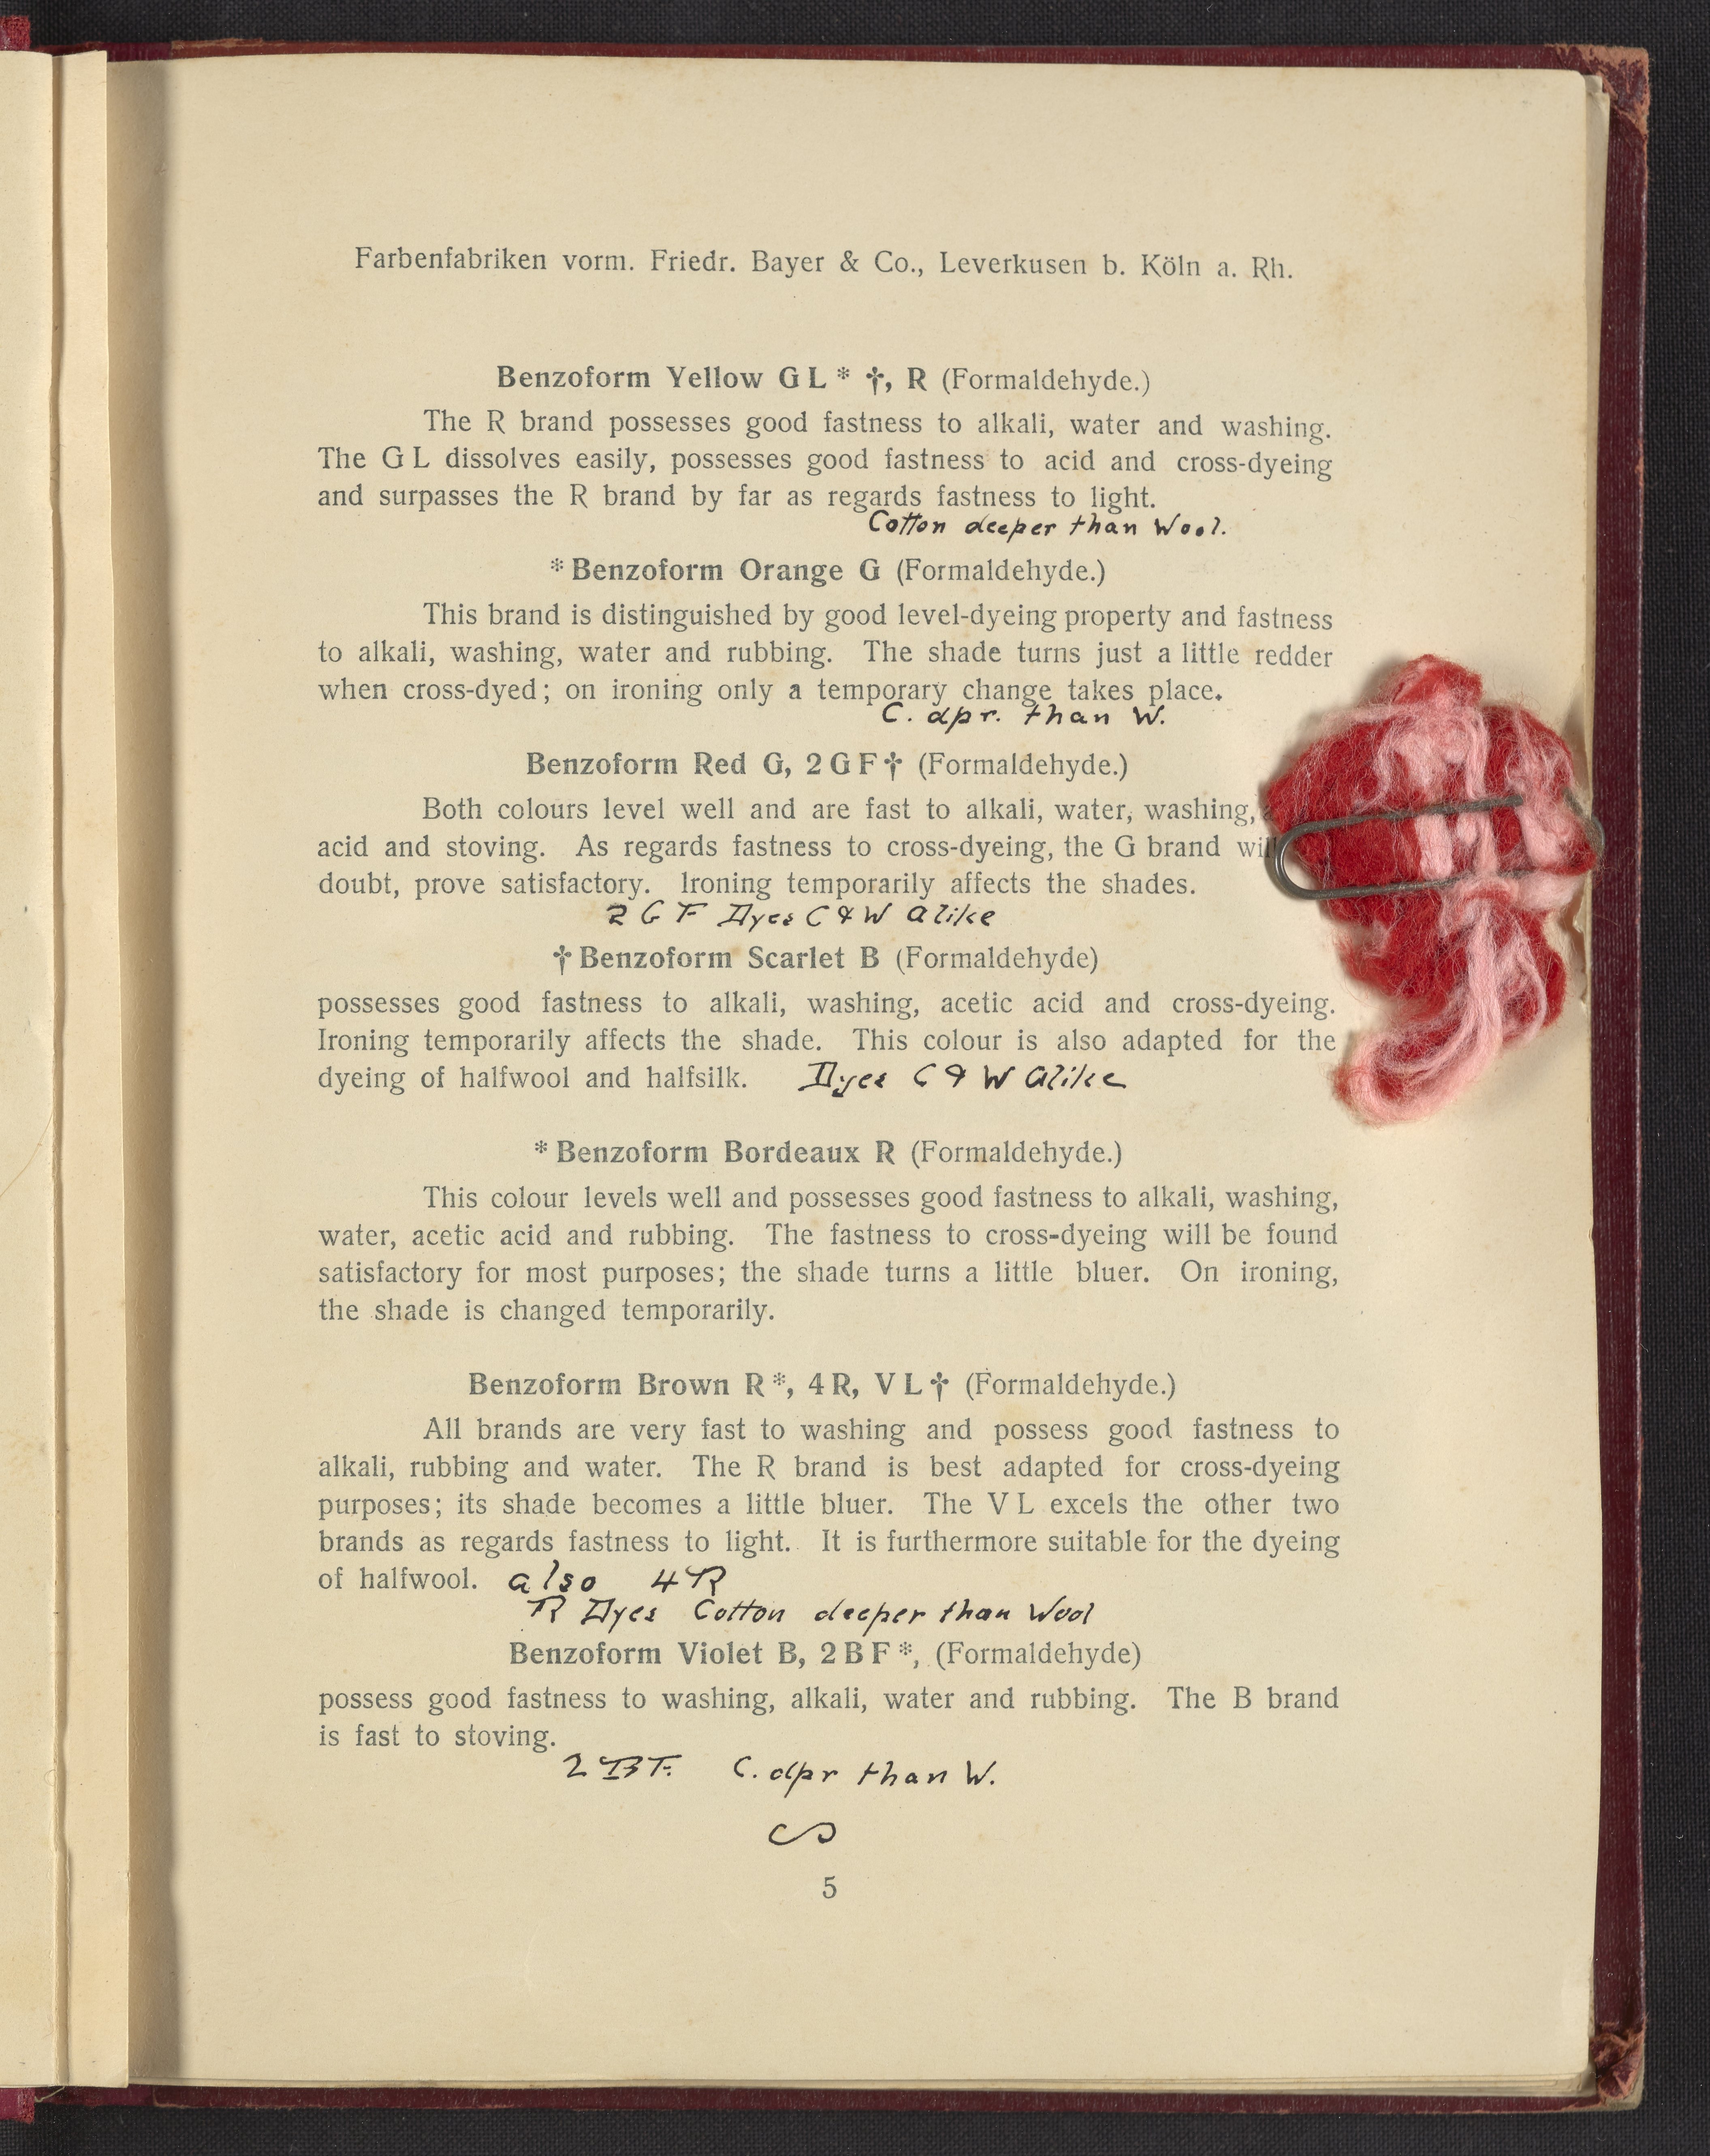 Farbenfabriken vorm. Friedr. Bayer & Co., Leverkusen b. Köln a. Rh.
Benzoform Yellow G L * †, R (Formaldehyde.)
The R brand possesses good fastness to alkali, water and washing.
The G L dissolves easily, possesses good fastness to acid and cross-dyeing
and surpasses the R brand by far as regards fastness to light.
Cotton deeper than Wool.
* Benzoform Orange G (Formaldehyde.)
This brand is distinguished by good level-dyeing property and fastness
to alkali, washing, water and rubbing. The shade turns just a little redder
when cross-dyed; on ironing only a temporary change takes place.
C. dpr. than W.
Benzoform Red G, 2 G F † (Formaldehyde.)
Both colours level well and are fast to alkali, water, washing,
acid and stoving. As regards fastness to cross-dyeing, the G brand will
doubt, prove satisfactory. Ironing temporarily affects the shades.
2 G F Dyes C & W alike
† Benzoform Scarlet B (Formaldehyde)
possesses good fastness to alkali, washing, acetic acid and cross-dyeing.
Ironing temporarily affects the shade. This colour is also adapted for the
dyeing of halfwool and halfsilk. Dyes C & W Alike
* Benzoform Bordeaux R (Formaldehyde.)
This colour levels well and possesses good fastness to alkali, washing,
water, acetic acid and rubbing. The fastness to cross-dyeing will be found
satisfactory for most purposes; the shade turns a little bluer. On ironing,
the shade is changed temporarily.
Benzoform Brown R *, 4 R, V L † (Formaldehyde.)
All brands are very fast to washing and possess good fastness to
alkali, rubbing and water. The R brand is best adapted for cross-dyeing
purposes; its shade becomes a little bluer. The V L excels the other two
brands as regards fastness to light. It is furthermore suitable for the dyeing
of halfwool. also 4 R
R Dyes Cotton deeper than Wool
Benzoform Violet B, 2 B F *, (Formaldehyde)
possess good fastness to washing, alkali, water and rubbing. The B brand
is fast to stoving.
2 B F. C. dpr than W.
5